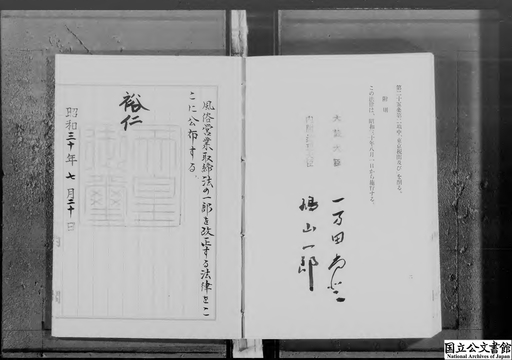 第二十条条第二項中「及び」を削る。
附則
この法律は、昭和三十年八月一日から施行する。
大蔵大臣
一万田尚登
内閣総理大臣
鳩山一郎
風俗営業取締法の一部を改正する法律をこ
こに公布する。
裕仁
天皇
御璽
昭和三十年七月二十日
国立公文書館
National Archives of Japan